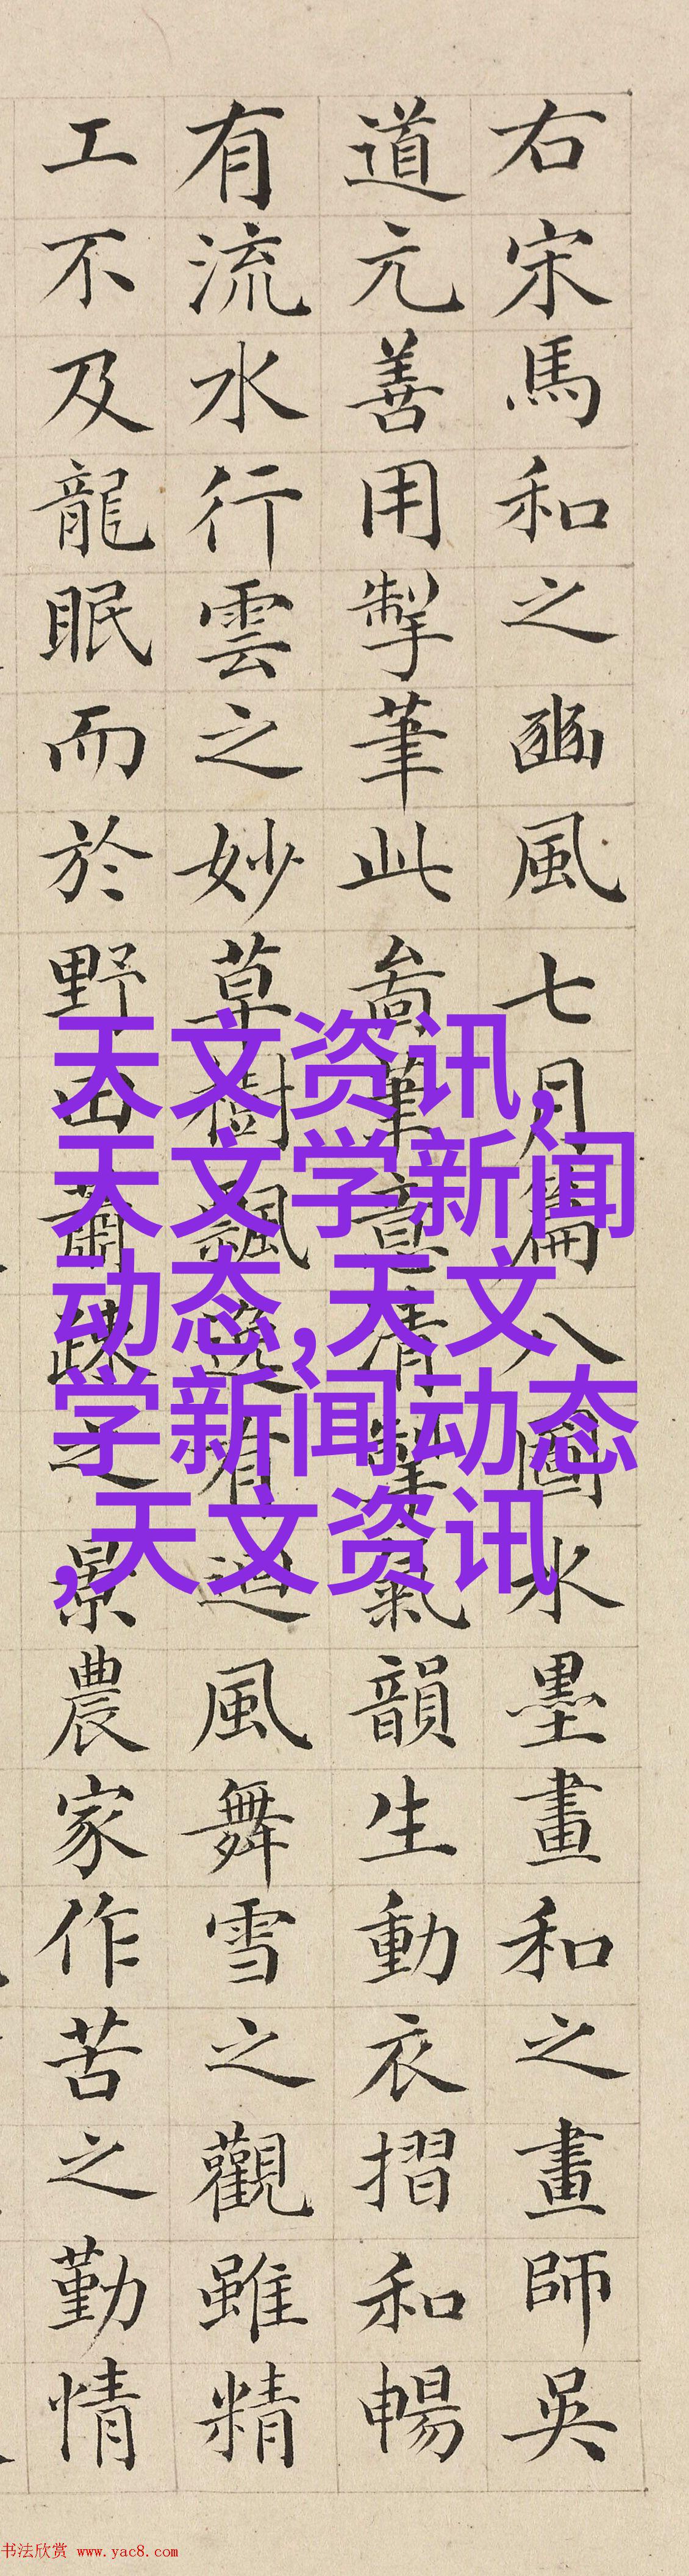 右宋馬和之豳風七月篇八圖水墨畫和之畫師吳
道元善用掣筆此啚筆意清氣韻生動衣摺和暢
有流水行雲之妙草樹飄逸有迴風舞雪之觀雖精
工不及龍眠而於野田蕭踈之景農家作苦之勤情
天文资讯,
天文学新闻
动态,天文
学新闻动态
,天文资讯
书法欣赏 www.yac8.com